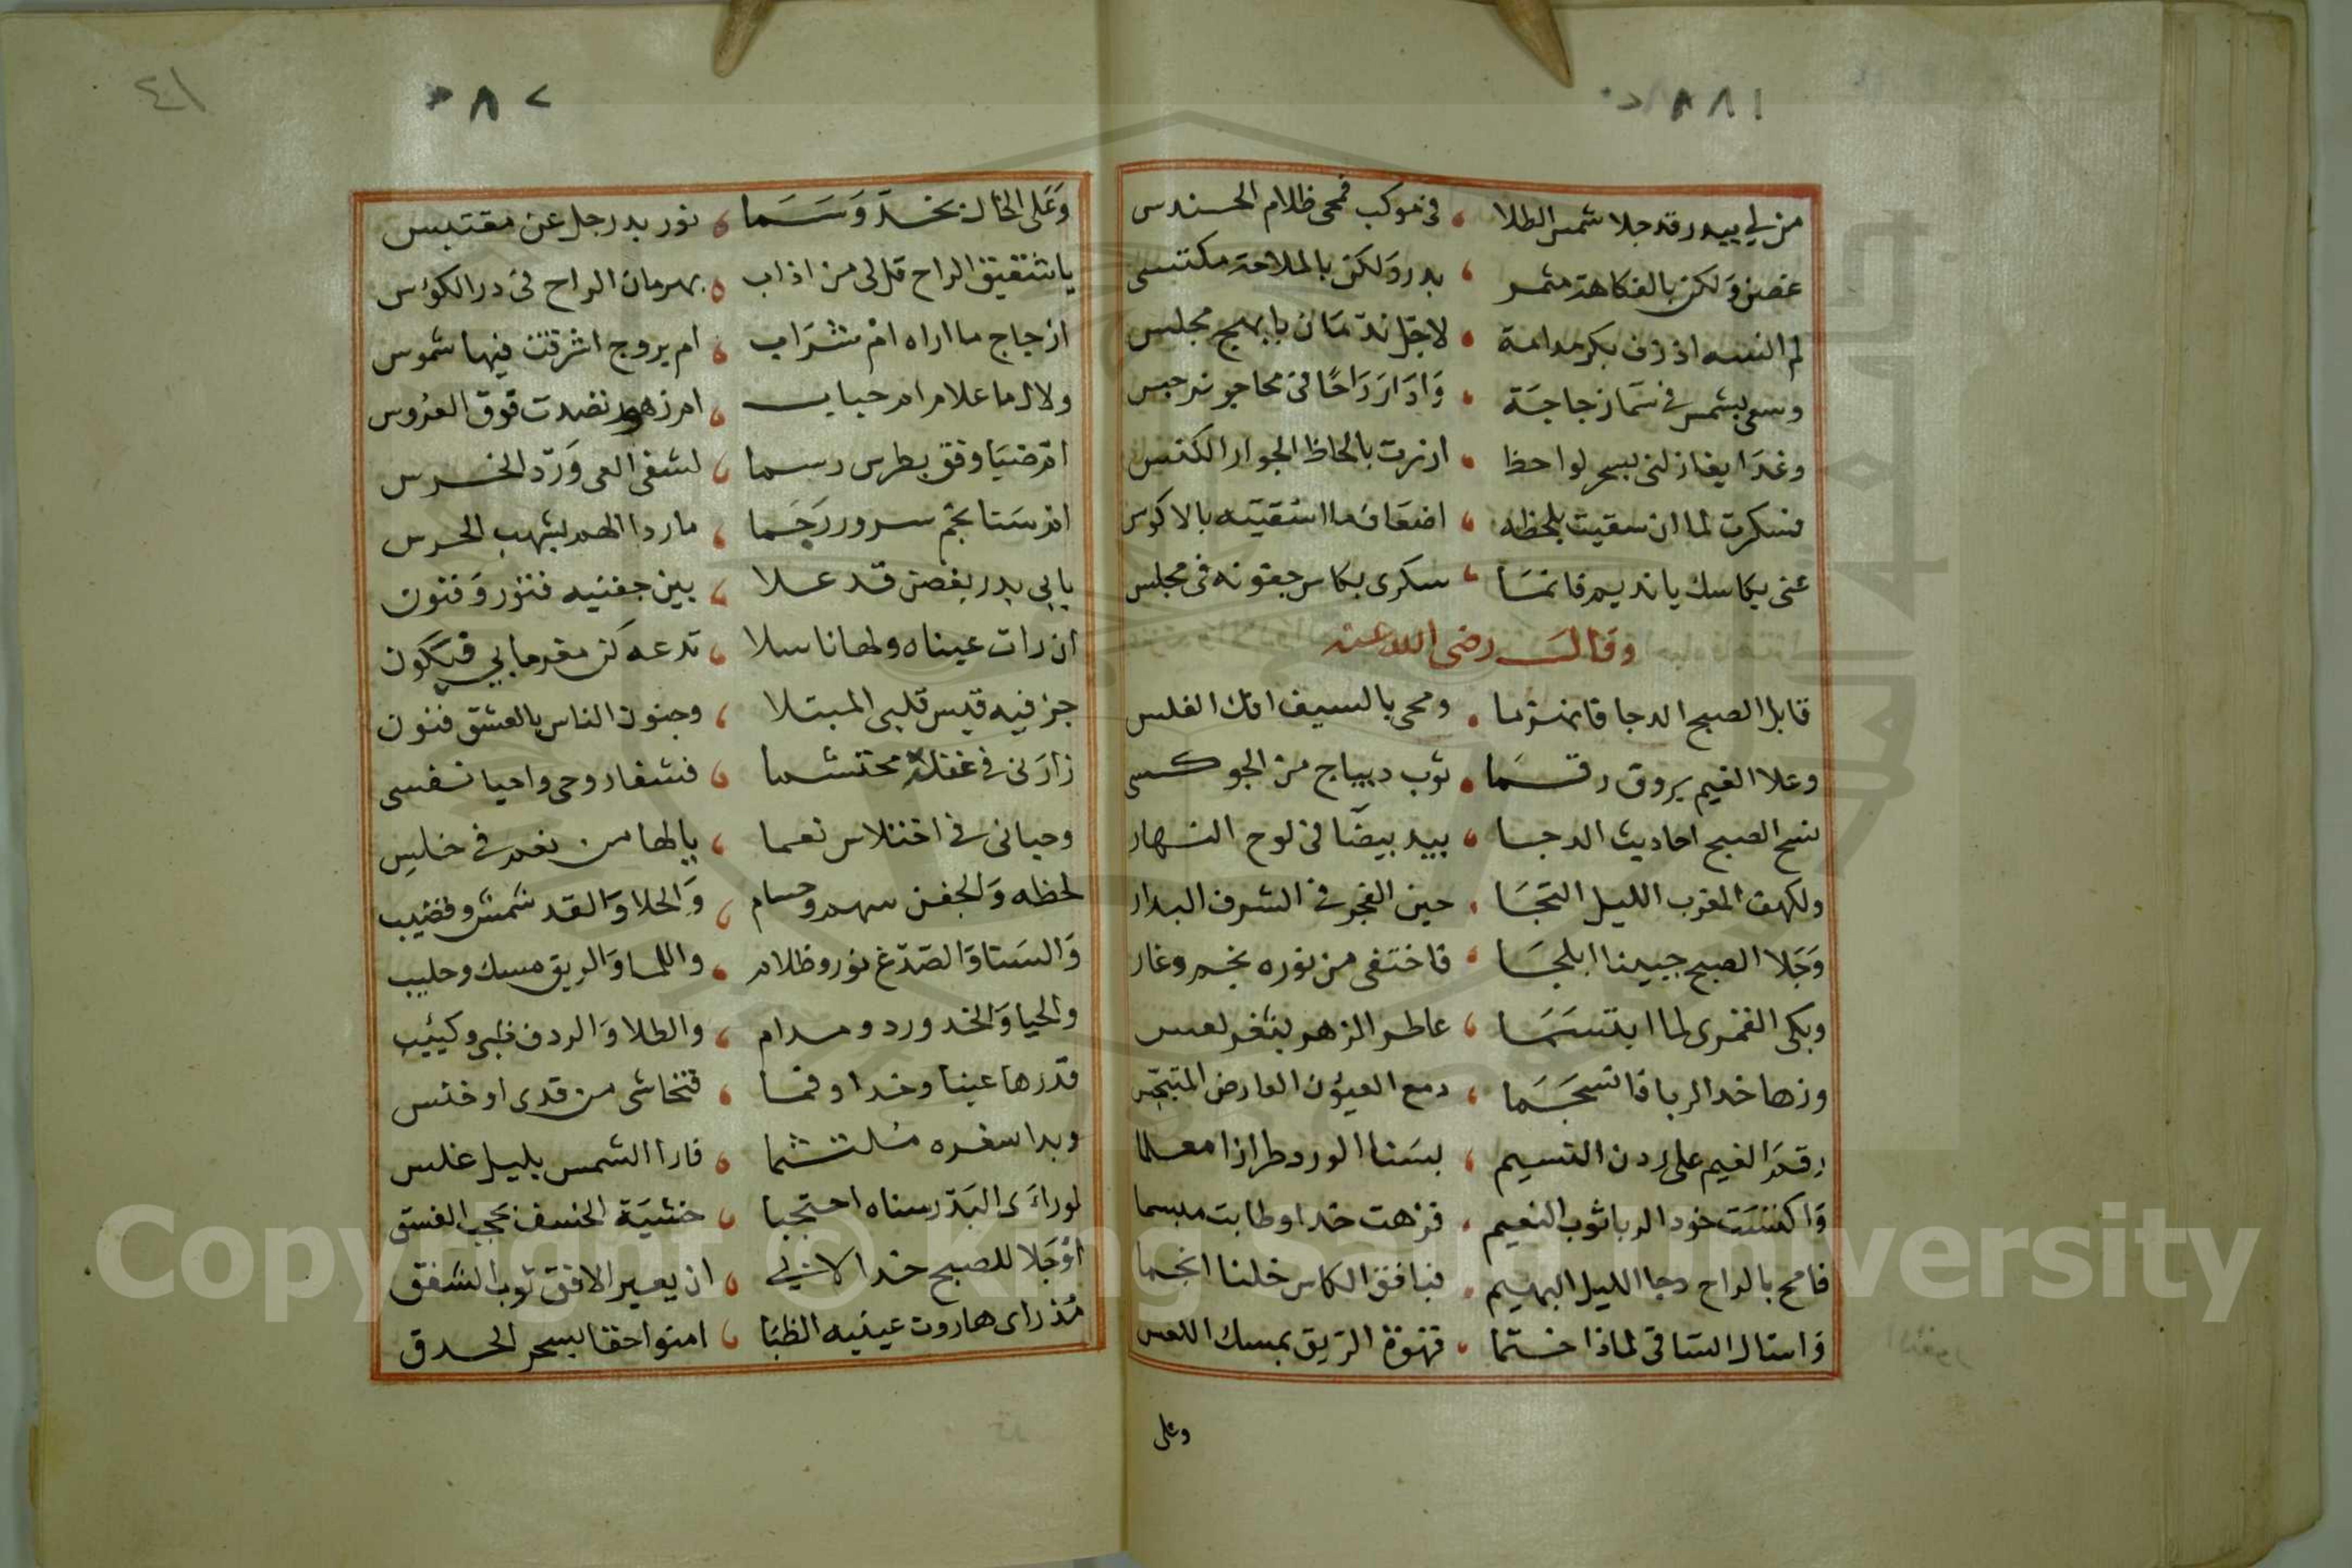 ٠٨٨١
من لي ببدر قد جلا شمس الطلا ، في موكب فمحى ظلام الحندس
غصن ولكن بالفكاهة مثمر ، بدر ولكن بالملاحة مكتسى
لم انسه اذ زف بكر مدامة ، لاجل ندمان بابهج مجلس
وسعى بشمس في سما زجاجة ، وادار راحا في محاجر نرجس
وغدا يغازلنى بسحر لواحظ ، ازرت بالحاظ الجوار الكنس
فسكرت لما ان سقيت بلحظه ، اضعاف ما اسقيته بالاكوس
عنى بكاسك يا نديم فانما ، سكرى بكاس جفونه في مجلس
وقال رضى الله عنه
قابل الصبح الدجا فانهزما ، ومحى بالسيف افك الغلس
وعلا الغيم بروق رقما ، ثوب ديباج من الجو كسى
نسخ الصبح احاديث الدجا ، بيد بيضا في لوح النهار
ولكهف المغرب الليل التجا ، حين الفجر في الشرف البدار
وجلا الصبح جبينا ابلجا ، فاختفى من نوره نجم وغار
وبكى القمرى لما ابتسما ، عاطر الزهر بثغر لعس
وزها خد الربا فانسجما ، دمع العيون العارض المتبجس
رقم الغيم على ردن النسيم ، بسنا الورد طرازا معلما
واكتست خود الربا ثوب النعيم ، فزهت خدا وطابت مبسما
فامح بالراح دجا الليل البهيم ، فبافق الكاس خلنا انجما
واسال الساقى لماذا ختما ، قهوة الريق بمسك اللعس
وعلى
٤١
٠٨٨٢
وعلى الخال بخد وسما ، نور بدر جل عن مقتبس
يا شقيق الراح قل لى من اذاب ، بهرمان الراح في در الكؤس
ازجاج ما اراه ام شراب ، ام بروج اشرقت فيها شموس
ولال ما علا ام حباب ، ام زهور نضدت فوق العروس
ام ضيا وفق بطرس رسما ، لشفى العى ورد الخرس
ام سنا نجم سرور رجما ، ماردا الهم بشهب الحرس
بابى بدر بغصن قد علا ، بين جفنيه فتور وفنون
ان رات عيناه ولهانا سلا ، تدعه كن مغرما بي فيكون
جن فيه قيس قلبى المبتلا ، وجنون الناس بالعشق فنون
زارنى في غفلة محتشما ، فشفا روحى واحيا نفسى
وحبانى في اختلاس نعما ، يا لها من نعم في خلس
لحظه والجفن سهم وحسام ، والحلا والقد شمس وقضيب
والسنا والصدغ نور وظلام ، واللما والريق مسك وحليب
والحيا والخد ورد ومدام ، والطلا والردف ظبى وكثيب
قدرها عينا وخدا وفما ، فتخاشى من قدى او خنس
وبدا سفره ملتثما ، فارا الشمس بليل غلس
لو راءى البدر سناه احتجبا ، خشية الخسف بحجب الغسق
او جلا للصبح خدا لابى ، ان يعير الافق ثوب الشفق
مذ راى هاروت عينيه الظبا ، امنوا حقا بسحر الحدق
Copyright © King Saud University